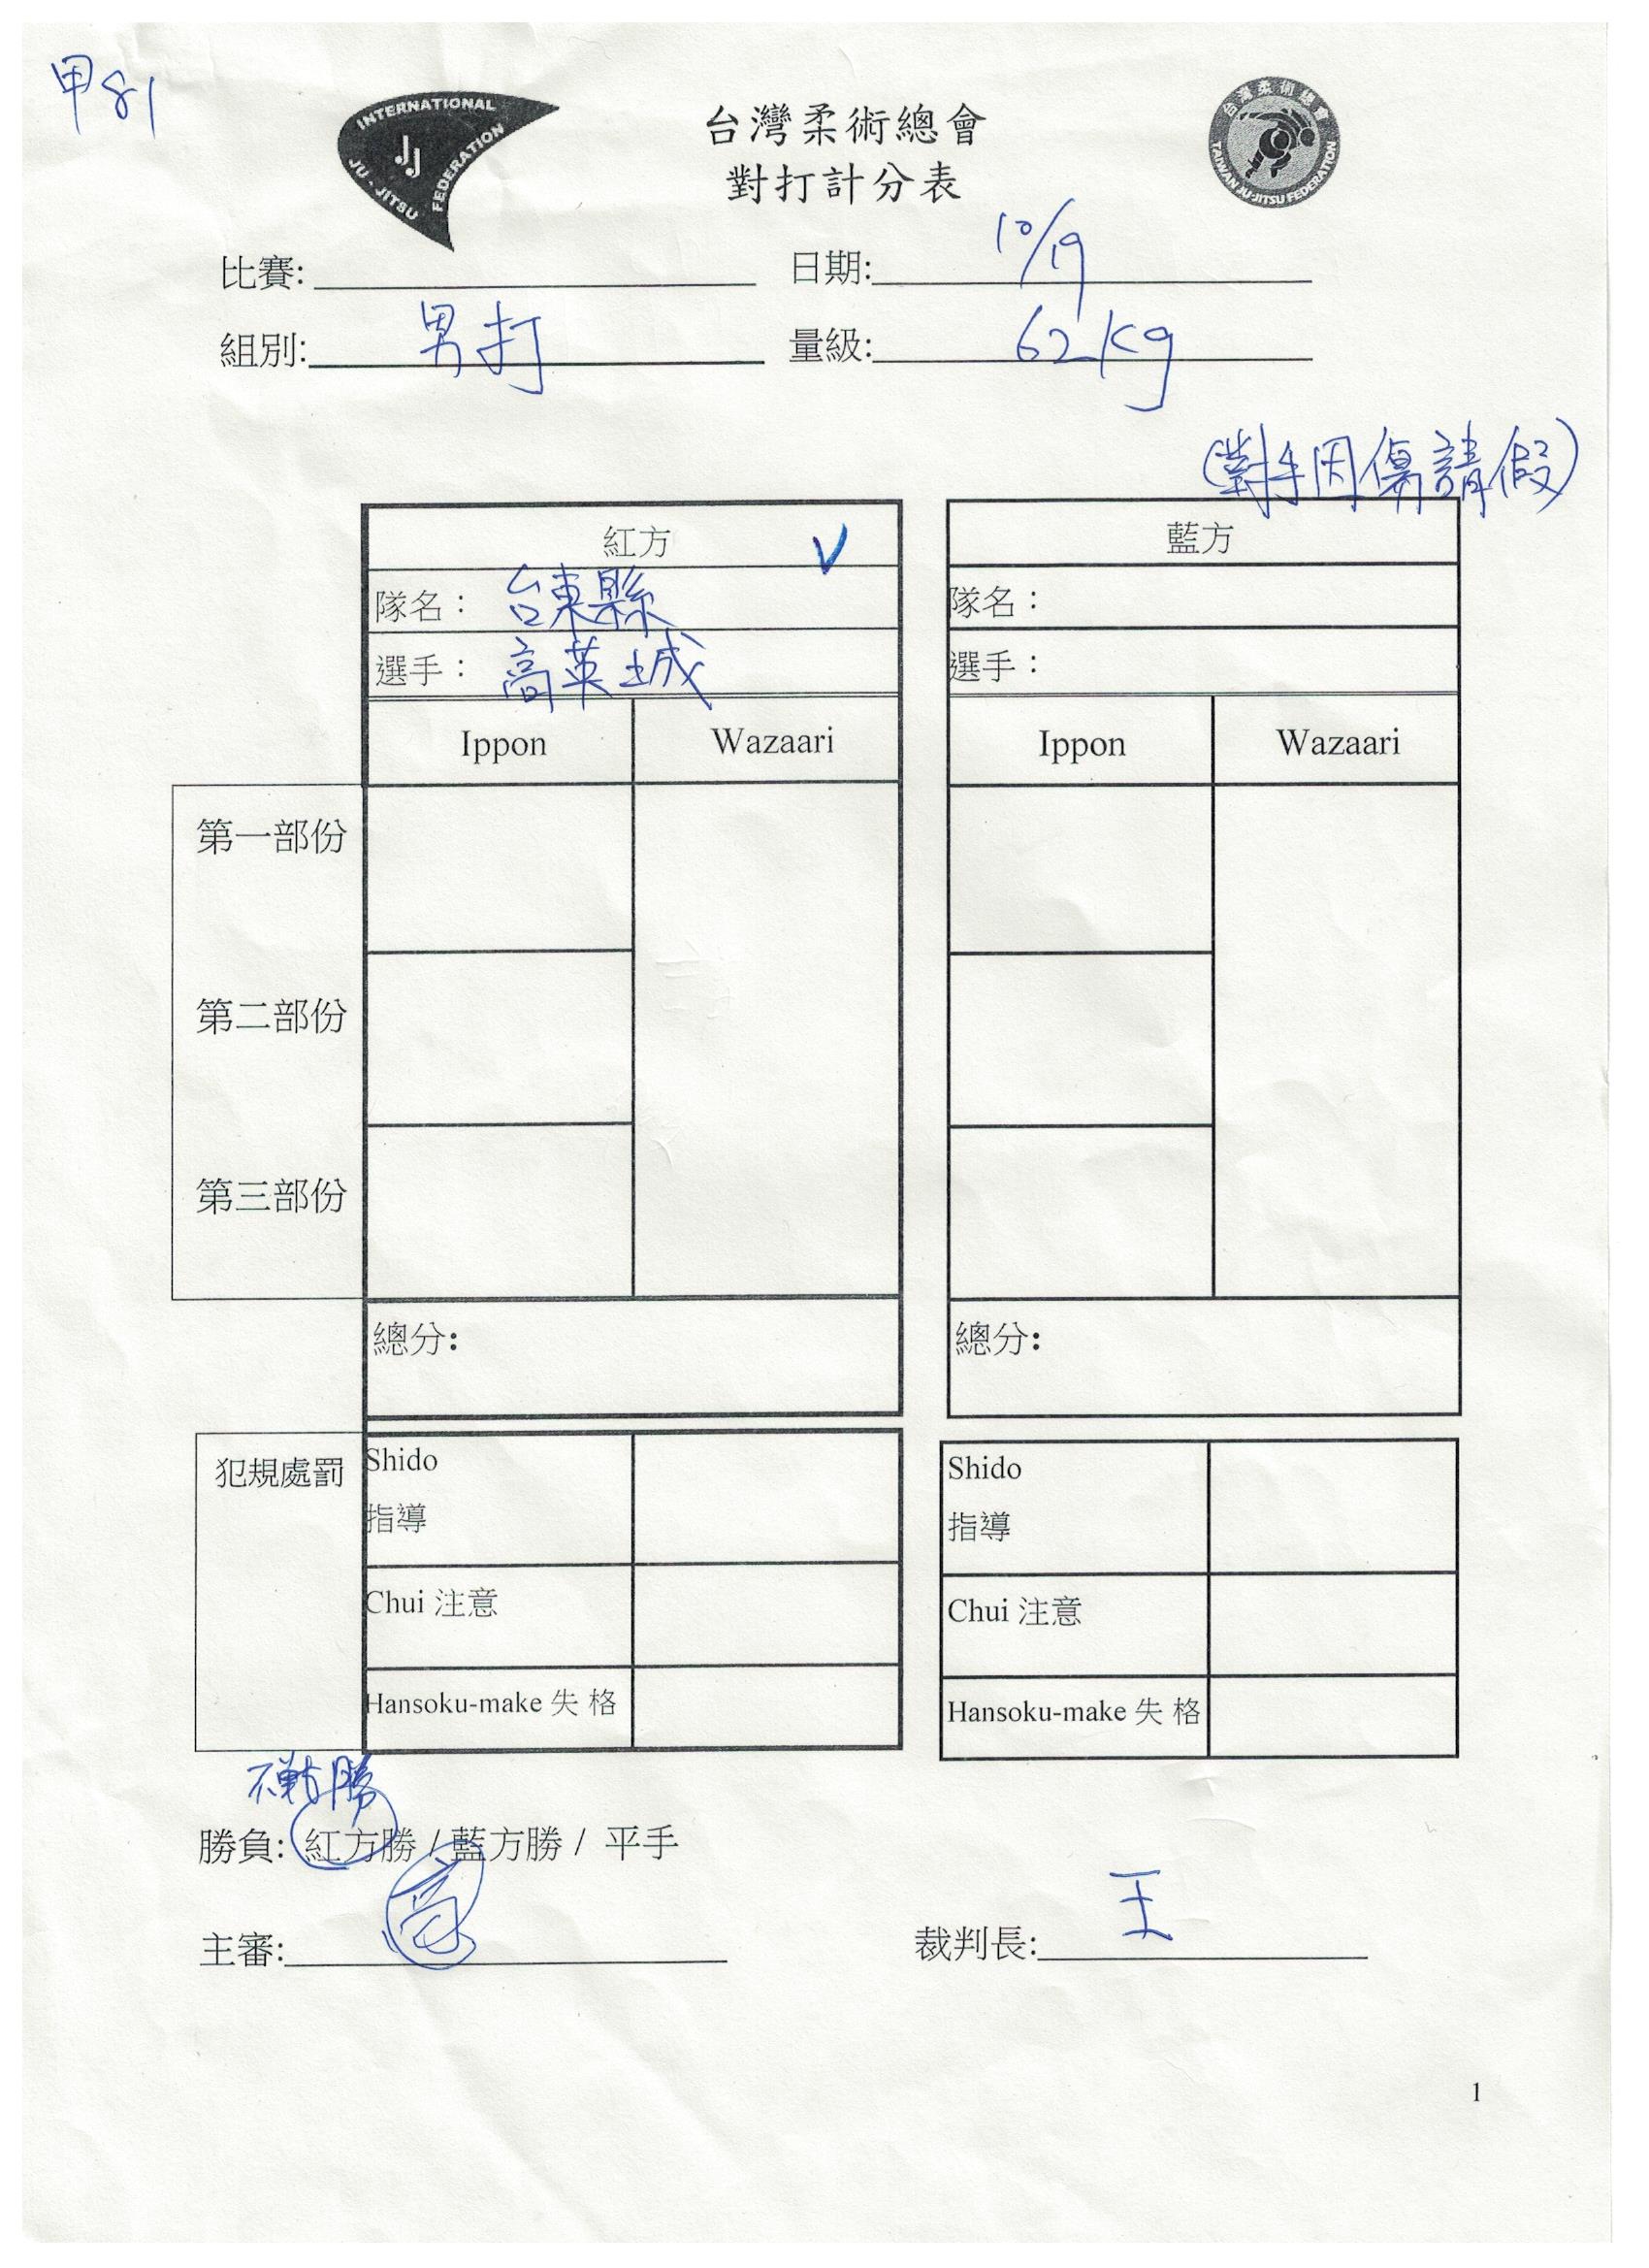 甲81
INTERNATIONAL
JJ
JU-JITSU
FEDERATION
台灣柔術總會
對打計分表
台灣柔術總會
TAIWAN JU-JITSU FEDERATION
比賽: 日期: 10/19
組別: 男打 量級: 62kg
(對手因傷請假)
紅方 V 藍方
隊名: 台東縣 隊名:
選手: 高英城 選手:
Ippon Wazaari Ippon Wazaari
第一部份
第二部份
第三部份
總分: 總分:
犯規處罰 Shido Shido
指導 指導
Chui 注意 Chui 注意
Hansoku-make 失 格 Hansoku-make 失 格
不戰勝
勝負: 紅方勝 / 藍方勝 / 平手
主審: 高 裁判長: 王
1